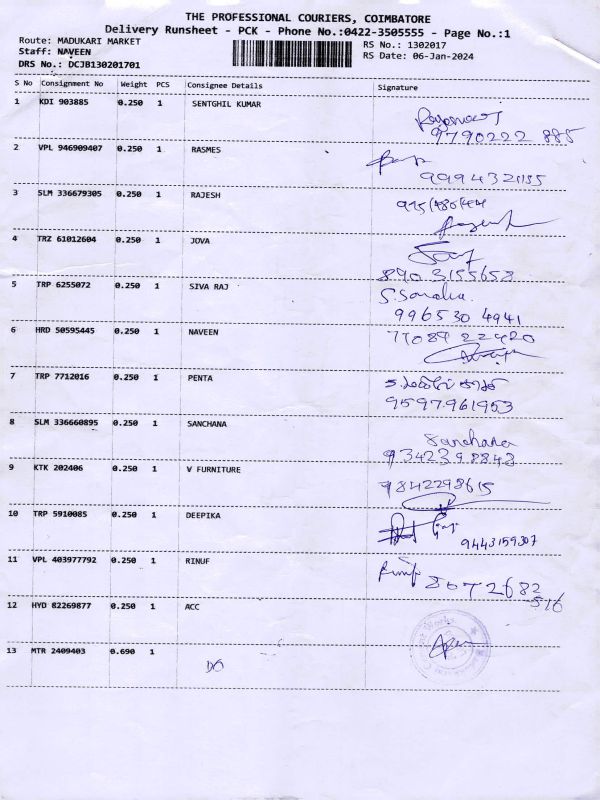 THE PROFESSIONAL COURIERS, COIMBATORE
Delivery Runsheet - PCK - Phone No.:0422-3505555 - Page No.:1
Route: MADUKARI MARKET
Staff: NAVEEN
DRS No.: DCJB130201701
RS No.: 1302017
RS Date: 06-Jan-2024
S No Consignment No Weight PCS Consignee Details Signature
1 KDI 903885 0.250 1 SENTGHIL KUMAR
9790222 885
2 VPL 946909407 0.250 1 RASMES
3 SLM 336679305 0.250 1 RAJESH
4 TRZ 61012604 0.250 1 JOVA
8903155658
5 TRP 6255072 0.250 1 SIVA RAJ
996530 4941
6 HRD 50595445 0.250 1 NAVEEN
77089 22420
7 TRP 7712016 0.250 1 PENTA
9597961953
8 SLM 336660895 0.250 1 SANCHANA
Sanchana
9342398843
9 KTK 202406 0.250 1 V FURNITURE
9842298615
10 TRP 5910085 0.250 1 DEEPIKA
9443159307
11 VPL 403977792 0.250 1 RINUF
Rinuf 8072682
516
12 HYD 82269877 0.250 1 ACC
13 MTR 2409403 0.690 1